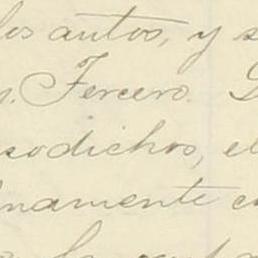 los autos, y s
n. Fercero. L
sodichos, el
namente c